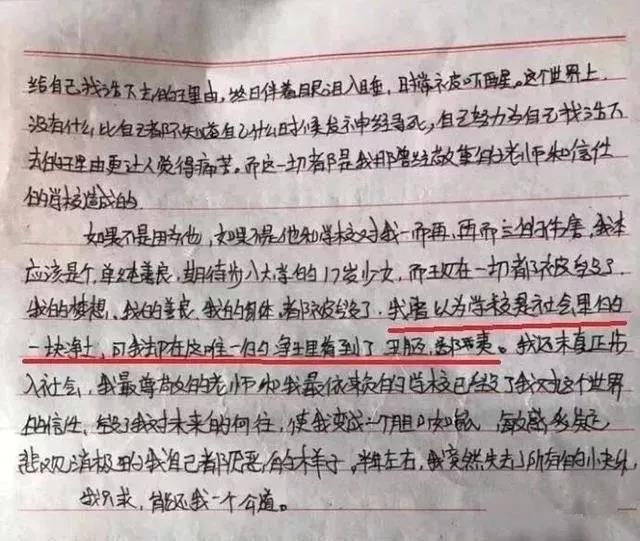 给自己找活下去的理由，终日伴着眼泪入睡，时常被吓醒。这个世界上
没有什么比自己都不知道自己什么时候发神经寻死，自己努力为自己找活下
去的理由更让人觉得痛苦。而这一切都是我那曾经敬重的老师和信任
的学校造成的。
如果不是因为他，如果不是他和学校对我一而再，再而三的伤害，我本
应该是个单纯善良，期待步入大学的17岁少女，而现在一切都被毁了
我的梦想、我的善良、我的身体，都被毁了，我曾以为学校是社会里的
一块净土，可我却在这唯一的净土里看到了丑陋，龌龊。我还未真正步
入社会，我最尊敬的老师和我最依赖的学校已经毁了我对这个世界
的信任，毁了我对未来的向往，使我变成一个胆小如鼠，敏感多疑，
悲观消极的我自己都厌恶的样子。半年左右，我突然失去了所有的
我只求，能还我一个公道。